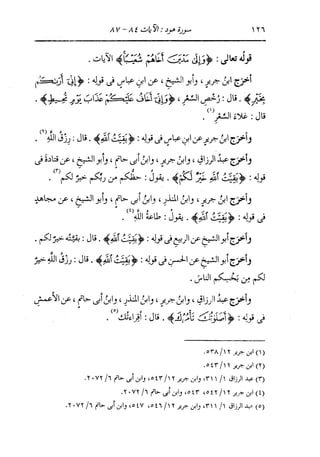 ١٢٦ سورة هود : الآيات ٨٤ - ٨٧
قوله تعالى : ﴿وَإِلَىٰ مَدْيَنَ أَخَاهُمْ شُعَيْبًا﴾ الآيات .
أخرج ابنُ جريرٍ ، وأبو الشيخِ ، عن ابنِ عباسٍ فى قوله : ﴿إِنِّىٓ أَرَىٰكُم
بِخَيْرٍ﴾ . قال : رُخْصُ السِّعْرِ ، ﴿وَإِنِّىٓ أَخَافُ عَلَيْكُمْ عَذَابَ يَوْمٍ مُّحِيطٍ﴾ .
قال : غلاءُ السِّعْرِ(١) .
وأخرَج ابنُ جريرٍ عن ابنِ عباسٍ فى قوله : ﴿بَقِيَّتُ ٱللَّهِ﴾ . قال : رِزْقُ اللَّهِ(٢) .
وأخرَج عبدُ الرزاقِ ، وابنُ جريرٍ ، وابنُ أبى حاتمٍ ، وأبو الشيخِ ، عن قتادةَ فى
قوله : ﴿بَقِيَّتُ ٱللَّهِ خَيْرٌ لَّكُمْ﴾ . يقولُ : حظُّكم مِن ربِّكم خيرٌ لكم(٣) .
وأخرَج ابنُ جريرٍ ، وابنُ المنذرِ ، وابنُ أبى حاتمٍ ، وأبو الشيخِ ، عن مجاهدٍ
فى قوله : ﴿بَقِيَّتُ ٱللَّهِ﴾ . يقولُ : طاعةُ اللَّهِ(٤) .
وأخرَج أبو الشيخِ عن الربيعِ فى قوله : ﴿بَقِيَّتُ ٱللَّهِ﴾ . قال : وصيَّتُه خيرٌ لكم .
وأخرَج أبو الشيخِ عن الحسنِ فى قوله : ﴿بَقِيَّتُ ٱللَّهِ﴾ . قال : رزقُ اللَّهِ خيرٌ
لكم مِن بَخْسِكم الناسَ .
وأخرَج عبدُ الرزاقِ ، وابنُ جريرٍ ، وابنُ المنذرِ ، وابنُ أبى حاتمٍ ، عن الأعمشِ
فى قوله : ﴿أَصَلَوٰتُكَ تَأْمُرُكَ﴾ . قال : أقراءتُك(٥) .
(١) ابن جرير ١٢/ ٥٣٨.
(٢) ابن جرير ١٢/ ٥٤٣.
(٣) عبد الرزاق ١/ ٣١١، وابن جرير ١٢/ ٥٤٣، وابن أبى حاتم ٦/ ٢٠٧٢.
(٤) ابن جرير ١٢/ ٥٤٢، ٥٤٣، وابن أبى حاتم ٦/ ٢٠٧٢.
(٥) عبد الرزاق ١/ ٣١١، وابن جرير ١٢/ ٥٤٦، ٥٤٧، وابن أبى حاتم ٦/ ٢٠٧٢.